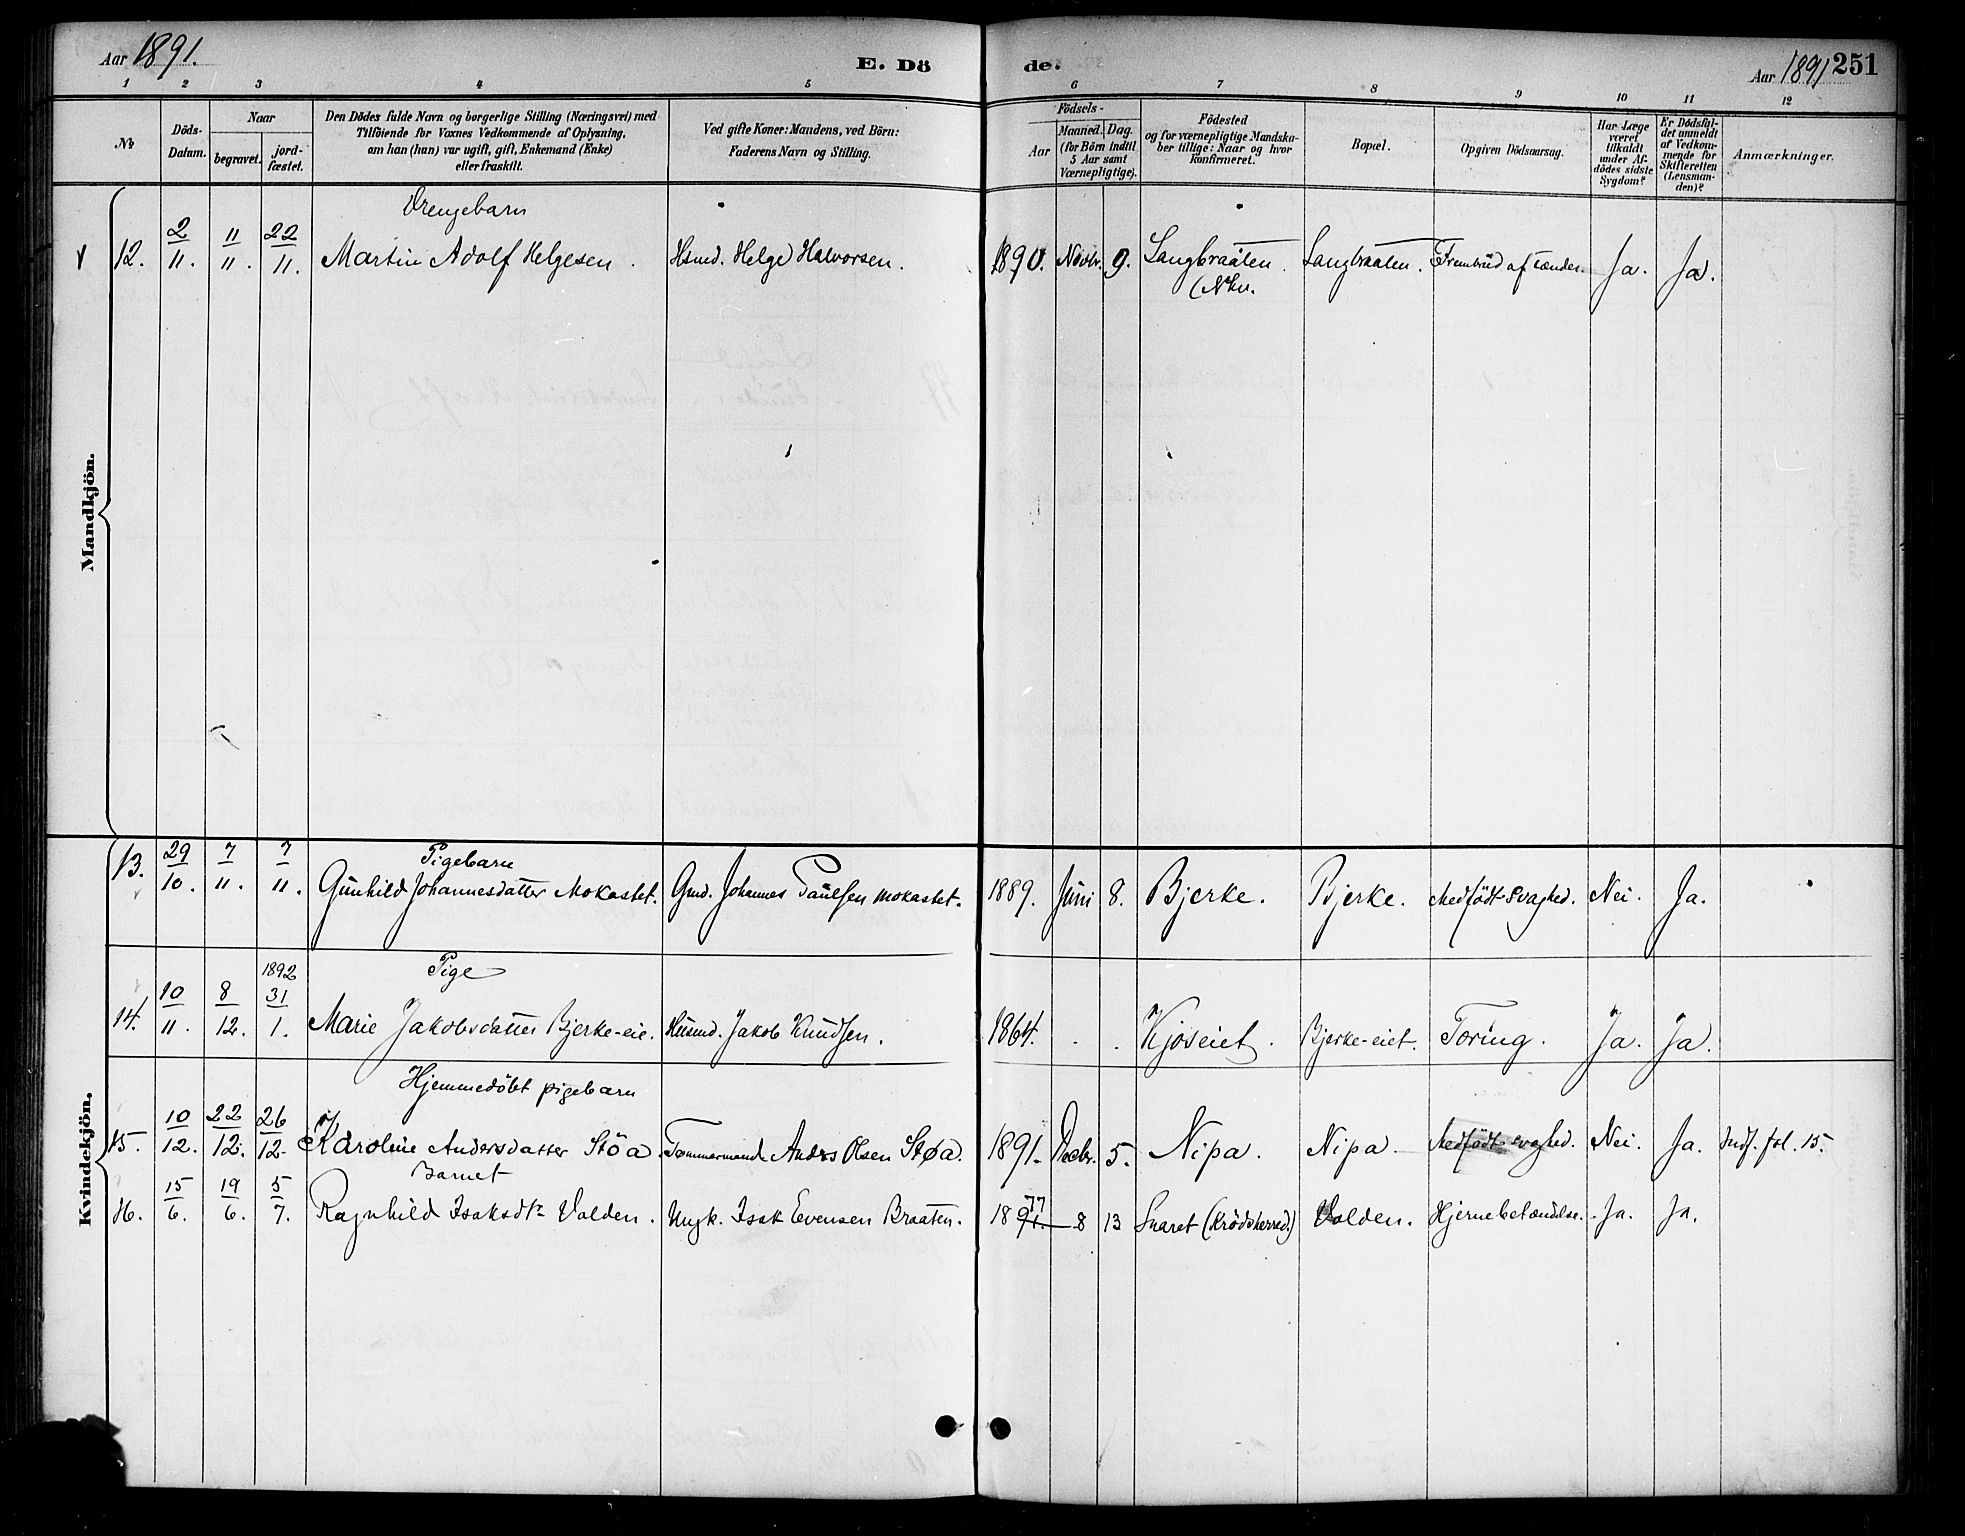 Aar 1891.
E. Dö
de.
Aar 1891 251
1 2 3 4 5
6 7 8 9 10 11 12
No
Döds-
Datum.
Naar
begravet.
jord-
fæstet.
Den Dödes fulde Navn og borgerlige Stilling (Næringsvei) med
Tilföiende for Voxnes Vedkommende af Oplysning,
om han (hun) var ugift, gift, Enkemand (Enke)
eller fraskilt.
Ved gifte Koner: Mandens, ved Börn:
Faderens Navn og Stilling.
Födsels-
Aar
Maaned. Dag.
(for Börn indtil
5 Aar samt
Værnepligtige).
Födested
og for værnepligtige Mandska-
ber tillige: Naar og hvor
Konfirmeret.
Bopæl.
Opgiven Dödsaarsag.
Har Læge
været
tilkaldt
under Af-
dödes sidste
Sygdom?
Er Dödsfal-
det anmeldt
af Vedkom-
mende for
Skifteretten
(Lensman-
den)?
Anmærkninger.
Mandkjön.
Drengebarn
12. 2/11. 11/11. 22/11. Martin Adolf Helgesen. Hsmd. Helge Halvorsen. 1890. Novbr. 9. Langbraaten. Langbraaten. Frembrud af Tænder. Ja. Ja.
Kvindekjön.
Pigebarn
13. 29/10. 7/11. 7/11. Gunhild Johannesdatter Mokastet. Gmd. Johannes Paulsen Mokastet. 1889. Juni 8. Bjerke. Bjerke. Medfödt Svaghed. Nei. Ja.
1892 Pige
14. 10/11. 8/12. 31/1. Marie Jakobsdatter Bjerke-eie. Husmd. Jakob Knudsen. 1864. Kjøseiet. Bjerke-eiet. Tæring. Ja. Ja.
Hjemmedöbt pigebarn
15. 10/12. 22/12. 26/12. Karoline Andersdatter Stöa. Tømmermand Anders Olsen Støa. 1891. Decbr. 5. Nipa. Nipa. Medfödt svaghed. Nei. Ja. Indf. fol. 15.
Barnet
16. 15/6. 19/6. 5/7. Ragnhild Isaksdtr Valden. Ungk. Isak Evensen Braaten. 1891. 77 8 13 Snaret (Krødsherred.) Valden. Hjernebetændelse. Ja. Ja.